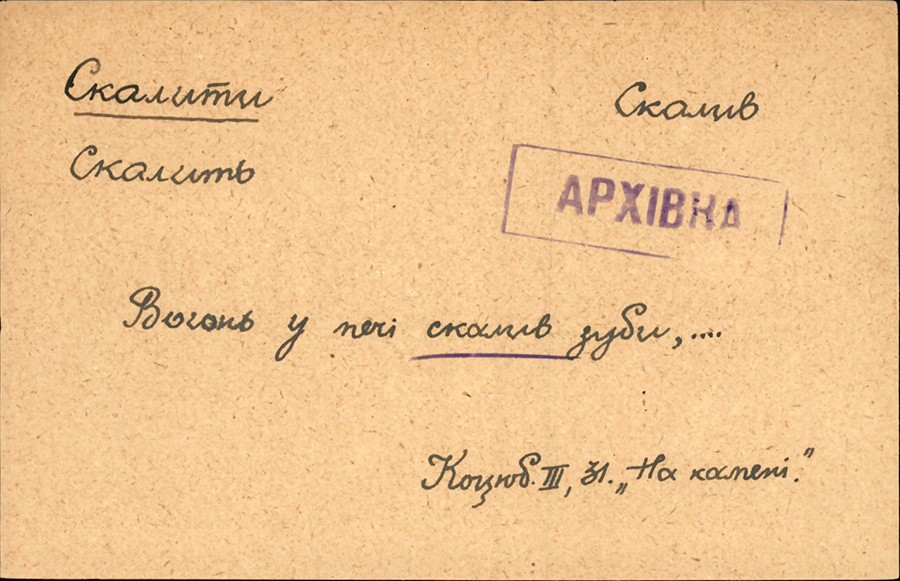 Скалити
Скалив
Скалить
АРХІВНА
Вогонь у печі скалив зуби,....
Коцюб. III, 31. „На камені."